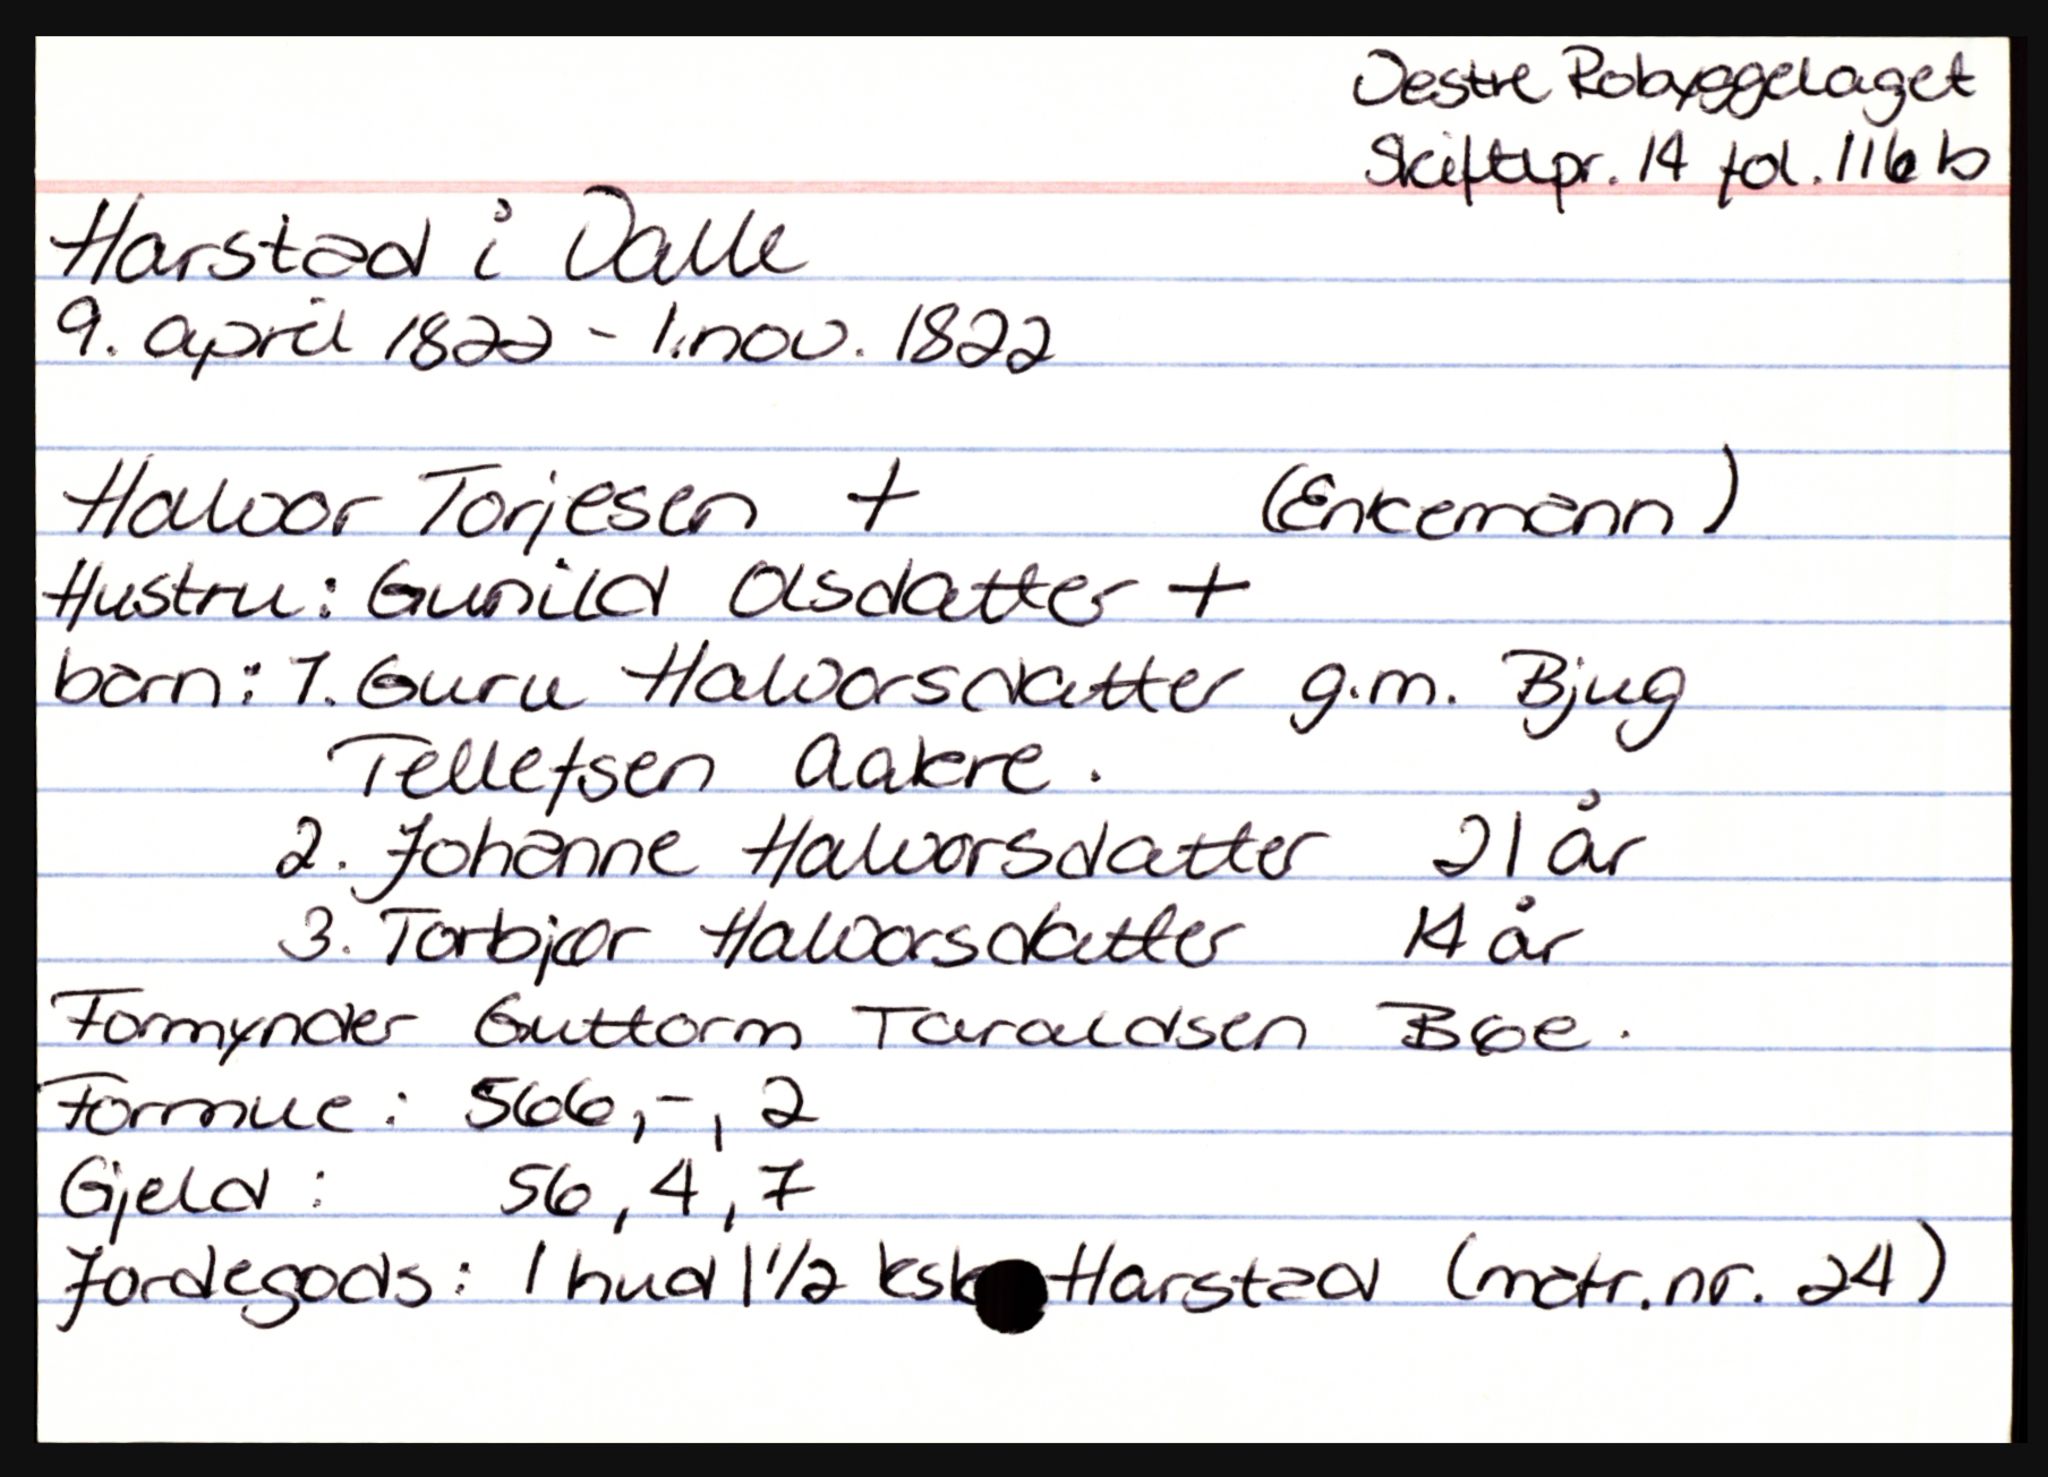 Vestre Robyggelaget
Skiftepr. 14 fol. 116 b
Harstad i Valle
9. april 1822 - 1. nov. 1822
Halvor Torjesen + (Enkemann)
Hustru: Gunild Olsdatter +
barn: 1. Guru Halvorsdatter g.m. Bjug
Tellefsen Aakre.
2. Johanne Halvorsdatter 21 år
3. Torbjør Halvorsdatter 14 år
Formynder Guttorm Taraldsen Bøe.
Formue: 566,-,2
Gjeld: 56,4,7
Jordegods: 1 hud 1 1/2 ksk Harstad (matr.nr. 24)